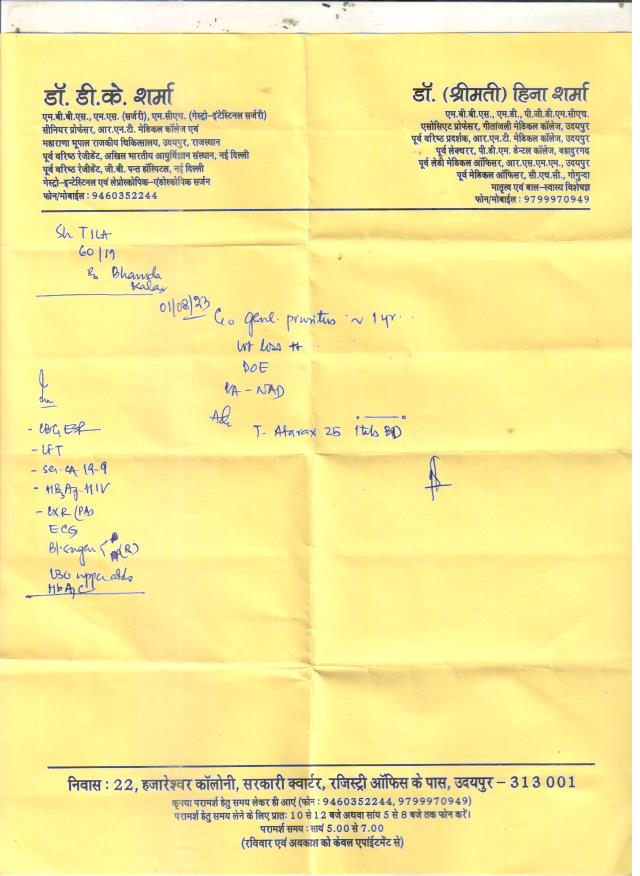 डॉ. डी.के. शर्मा
एम.बी.बी.एस., एम.एस. (सर्जरी), एम.सीएच. (गेस्ट्रो-इंटेस्टिनल सर्जरी)
सीनियर प्रोफेसर, आर.एन.टी. मेडिकल कॉलेज एवं
महाराणा भूपाल राजकीय चिकित्सालय, उदयपुर, राजस्थान
पूर्व वरिष्ठ रेजीडेंट, अखिल भारतीय आयुर्विज्ञान संस्थान, नई दिल्ली
पूर्व वरिष्ठ रेजीडेंट, जी.बी. पन्त हॉस्पिटल, नई दिल्ली
गेस्ट्रो-इन्टेस्टिनल एवं लेप्रोस्कोपिक-एंडोस्कोपिक सर्जन
फोन/मोबाईल : 9460352244
डॉ. (श्रीमती) हिना शर्मा
एम.बी.बी.एस., एम.डी., पी.जी.डी.एम.सीएच.
एसोसिएट प्रोफेसर, गीतांजली मेडिकल कॉलेज, उदयपुर
पूर्व वरिष्ठ प्रदर्शक, आर.एन.टी. मेडिकल कॉलेज, उदयपुर
पूर्व लेक्चरर, पी.डी.एम. डेन्टल कॉलेज, बहादुरगढ़
पूर्व लेडी मेडिकल ऑफिसर, आर.एस.एम.एम., उदयपुर
पूर्व मेडिकल ऑफिसर, सी.एच.सी., गोगुन्दा
मातृत्व एवं बाल-स्वास्थ्य विशेषज्ञ
फोन/मोबाईल : 9799970949
Sh TILA
60/M
Kalan
01/08/23
C/o genl. pruritus ~ 1 yr.
wt loss ++
DOE
P/A - NAD
Adv
T- Atarax 25 1 tab BD
- CBC, ESR
- LFT
- Ser. CA 19-9
- HBsAg - HIV
- CXR (PA)
ECG
Bl. sugar F PP (R)
USG upper abdo
HbA1C
निवास : 22, हजारेश्वर कॉलोनी, सरकारी क्वार्टर, रजिस्ट्री ऑफिस के पास, उदयपुर - 313 001
कृपया परामर्श हेतु समय लेकर ही आएं (फोन : 9460352244, 9799970949)
परामर्श हेतु समय लेने के लिए प्रातः 10 से 12 बजे अथवा सायं 5 से 8 बजे तक फोन करें।
परामर्श समय : सायं 5.00 से 7.00
(रविवार एवं अवकाश को केवल एपॉईंटमेंट से)